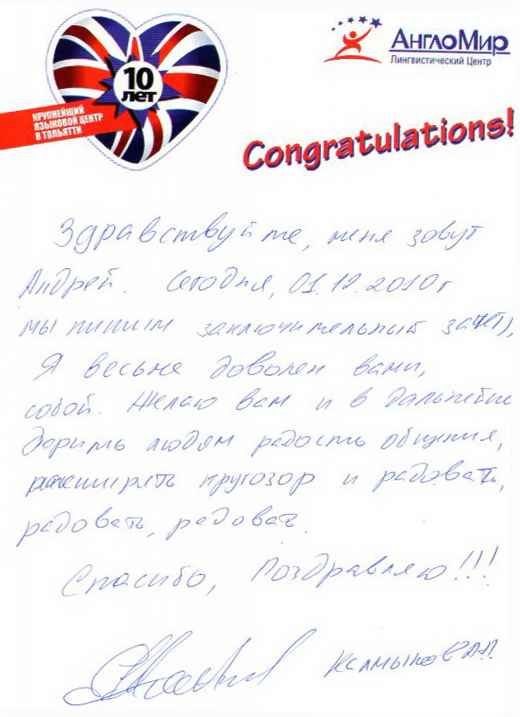 10
ЛЕТ
КРУПНЕЙШИЙ
ЯЗЫКОВОЙ ЦЕНТР
В ТОЛЬЯТТИ
АнглоМир
Лингвистический Центр
Congratulations!
Здравствуйте, меня зовут
Андрей. Сегодня, 01.12.2010г
мы пишим заключительный зачёт),
Я весьма доволен вами,
собой. Желаю вам и в дальнейшем
дарить людям радость общения,
расширять кругозор и радовать,
радовать, радовать.
Спасибо, Поздравляю!!!
Калмыков А.П.